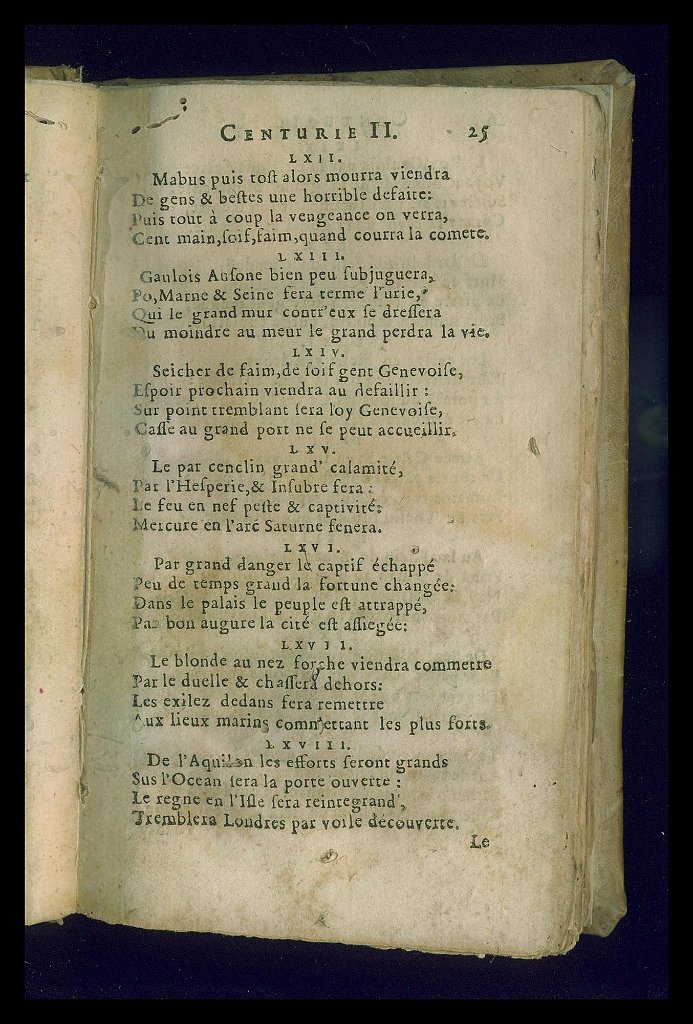 CENTURIE II. 25
LXII.
Mabus puis toſt alors mourra viendra
De gens & beſtes une horrible defaite:
Puis tout à coup la vengeance on verra,
Cent main,ſoif,faim,quand courra la comete.
LXIII.
Gaulois Auſone bien peu ſubjuguera,
Po,Marne & Seine fera terme l'urie,
Qui le grand mur contr'eux ſe dreſſera
Du moindre au meur le grand perdra la vie.
LXIV.
Seicher de faim,de ſoif gent Genevoiſe,
Eſpoir prochain viendra au defaillir :
Sur point tremblant ſera loy Genevoiſe,
Caſſe au grand port ne ſe peut accueillir.
LXV.
Le par cenclin grand' calamité,
Par l'Heſperie,& Inſubre fera :
Le feu en nef peſte & captivité:
Mercure en l'arc Saturne fenera.
LXVI.
Par grand danger le captif échappé
Peu de temps grand la fortune changée:
Dans le palais le peuple eſt attrappé,
Par bon augure la cité eſt aſſiegée:
LXVII.
Le blonde au nez forche viendra commetre
Par le duelle & chaſſera dehors:
Les exilez dedans fera remettre
Aux lieux marins commettant les plus forts.
LXVIII.
De l'Aquilon les efforts ſeront grands
Sus l'Ocean ſera la porte ouverte :
Le regne en l'Iſle ſera reintegrand',
Tremblera Londres par voile découverte.
Le